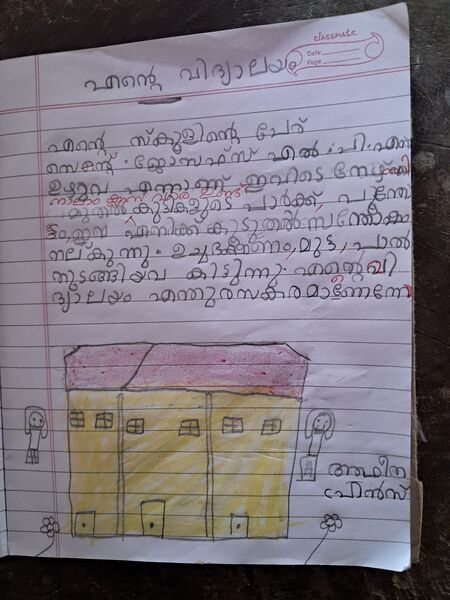 classmate
Date
Page
എന്റെ വിദ്യാലയം
എന്റെ സ്കൂളിന്റെ പേര്
സെന്റ് ജോസഫ്സ് എൽ.പി.എസ
ഉഴുവ എന്നാണ് ഇവിടെ നേഴ്സറി
നാലാം ക്ലാസ് വരെ ഉണ്ട്
മുതൽ കുട്ടികളുടെ പാർക്ക്, പൂന്തോ
ട്ടം, ഇവ എനിക്ക് കൂടുതൽ സന്തോഷം
നല്കുന്നു. ഉച്ചഭക്ഷണം, മുട്ട, പാൽ
തുടങ്ങിയവ കിട്ടുന്നു. എന്റെ വി
ദ്യാലയം എന്തുരസകരമാണെന്നോ
പ്രിൻസ്